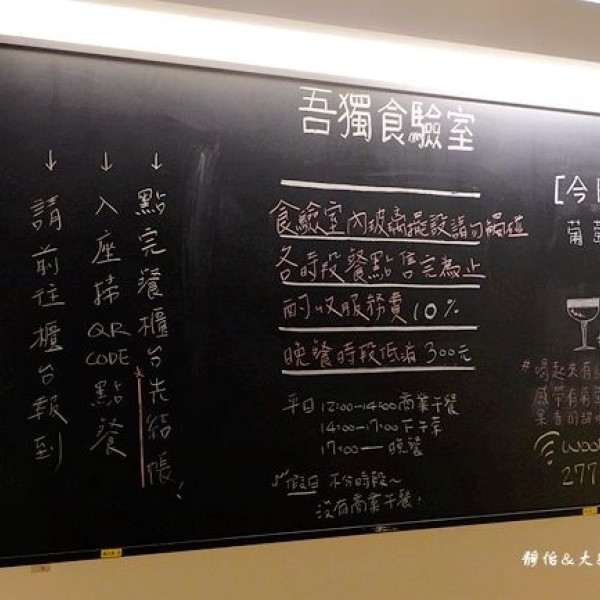 ↓請前往櫃台報到
↓入座掃QR CODE點餐
↓點完餐櫃台先結帳!
吾獨食驗室
食驗室內玻璃擺設請勿觸碰
各時段餐點售完為止
酌收服務費10%
晚餐時段低消300元
平日 12:00-14:00商業午餐
14:00-17:00下午茶
17:00—晚餐
假日 不分時段~
沒有商業午餐!
[今日
葡萄
#喝起來有
感帶有葡萄
果香的甜
WOO
277
靜怡&大